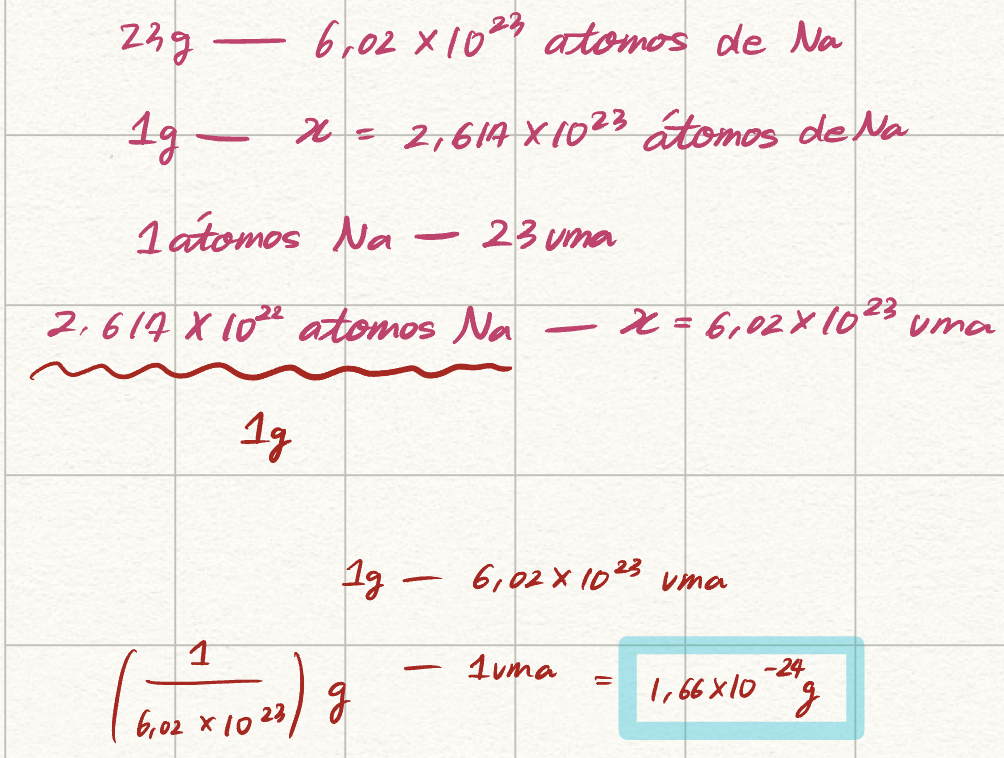 23g — 6,02 × 10²³ atomos de Na
1g — x = 2,617 × 10²³ átomos de Na
1 átomos Na — 23 uma
2,617 × 10²² atomos Na — x = 6,02 × 10²³ uma
1g
1g — 6,02 × 10²³ uma
(1 / 6,02 × 10²³) g — 1 uma = 1,66 × 10⁻²⁴ g